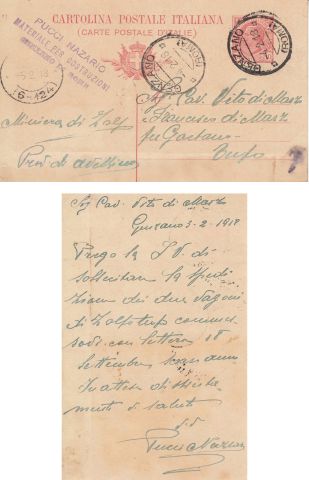 CARTOLINA POSTALE ITALIANA
(CARTE POSTALE D'ITALIE)
PUCCI NAZARIO
MATERIALE PER COSTRUZIONI
GENZANO
(ROMA)
5. 2. 18
6-124
Cav. Vito di Marzo
Francesco di Marzo
fu Gaetano
Tufo
Miniera di Zolfo
Prov. di Avellino
Sig Cav. Vito di Marzo
Genzano 3-2-1918
Prego la S.V. di
sollecitare la spedi
zione dei due vagoni
di Zolfo tufo commes
con lettera 18
Settembre scorso anno
In attesa
mente di saluto
Pucci Nazario